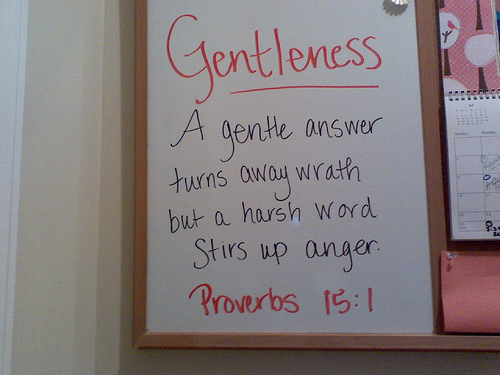 Gentleness
A gentle answer
turns away wrath
but a harsh word
Stirs up anger.
Proverbs 15:1